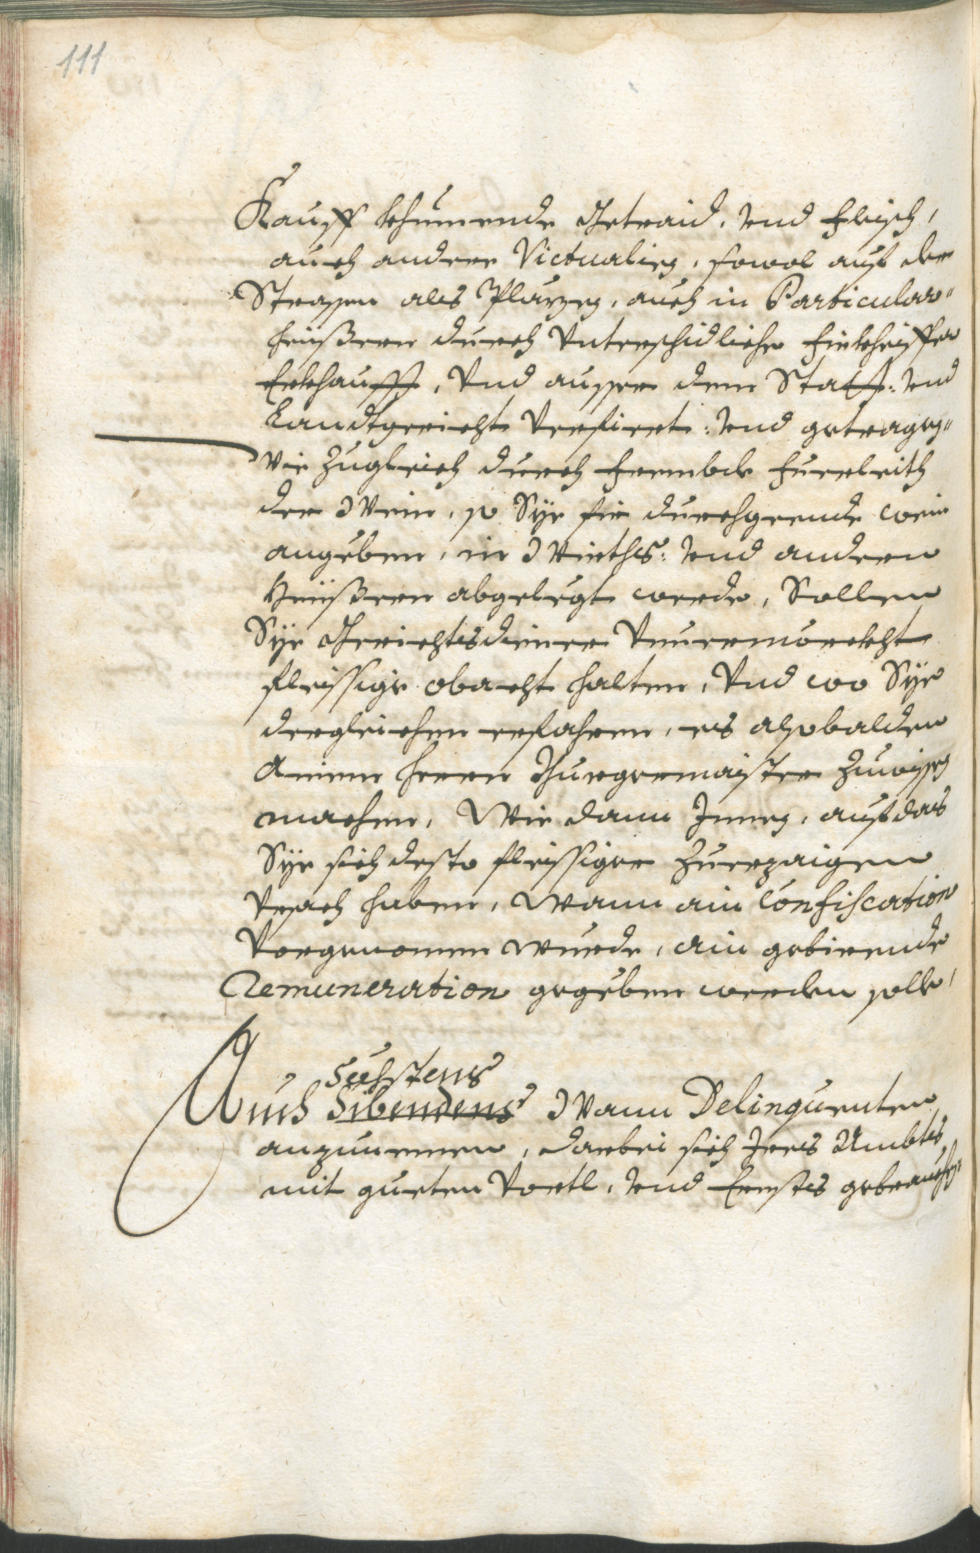 111
Kauff khumende Getraid, vnd Fleisch,
auch andere Victualien, sowol auf der
Strassen als Pläzen, auch in Particular-
heüßern durch Vnterschidliche
Erkhaufft, Vnd ausser dem Statt: vnd
Landtgericht Verfiert: vnd getragen
wie zugleich durch frembde Fuerleith
der Wein, so Sÿe fir durchgeende wein
angeben, in Wirths: vnd andern
Heüßern abgelegt werde, Sollen
Sÿe Gerichtsdiener Vnuermörckht
fleissige obacht halten, Vnd wo Sÿe
dergleichen erfahren, es alsobalden
Ainem Herrn Burgermaister zuwissen
machen, Wie dann Jnnen, auf das
Sÿe sich desto fleissiger zuerzaigen
Vrsach haben, Wann ain Confiscation
Vorgenomen wurde, ain gebirende
Remuneration gegeben werden solle,
Sechstens
Auch Sibendens Wann Delinquenten
anzunemen, darbei sich Jres Ambts
mit gueten Vortl, vnd Ernstes gebrauchen